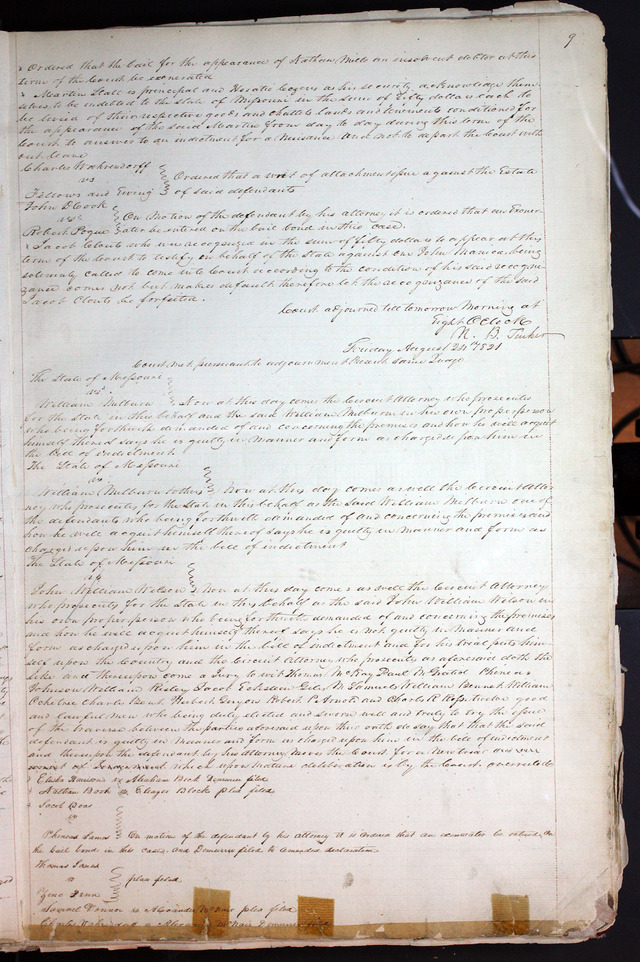 9
Ordered that the bail for the appearance of Nathan Mills an insolvent debtor at this
term of the Court be exonerated
Martin Stall as principal and Horatio Cozens as his security acknowledge them
selves to be indebted to the state of Missouri in the sum of fifty dollars each to
be levied of their respective goods and chattels lands and tenements conditioned for
the appearance of the said Martin from day to day during this term of the
Court to answer to an indictment for a Nuisance and not to depart the Court with
out leave
Charles Wahrendorff
vs
Fellows and Ewing
Ordered that a writ of attachment issue against the Estate
of said defendants
John D Cook
vs
Robert Pogue
On Motion of the defendant by his attorney it is ordered that an Exoner
ater be entered on the bail bond in this case.
Jacob Clouts who was recognized in the sum of fifty dollars to appear at this
term of the Court to testify on behalf of the State against one John being
solemnly called to come into Court according to the condition of his said recogni
zance comes not but makes default therefore let the recognizance of the said
Jacob Clouts be forfeited.
Court adjourned till tomorrow Morning at
Eight OClock
N. B. Tucker
Friday August 24th 1821
Court met pursuant to adjournment Present same Judge
The State of Missouri
vs
William Milburn
Now at this day comes the Circuit Attorney who prosecutes
for the State in this behalf and the said William Milburn in his own proper person
who being forthwith demanded of and concerning the premises and how he will acquit
himself thereof says he is guilty in Manner and form as charged upon him in
the Bill of indictment
The State of Missouri
vs
William Milburn & others
Now at this day comes as well the Circuit Attor
ney who prosecutes for the State in this behalf as the Said William Milburn one of
the defendants who being forthwith demanded of and concerning the premises and
how he will acquit himself thereof says he is guilty in manner and form as
charged upon him in the bill of indictment
The State of Missouri
vs
John William Wilson
Now at this day comes as well the Circuit Attorney
who prosecutes for the State in this behalf as the said John William Wilson in
his own proper person who being forthwith demanded of and concerning the premises
and how he will acquit himself thereof says he is not guilty in Manner and
form as charged upon him in the bill of indictment and for his trial puts him
self upon the Country and the Circuit Attorney who prosecutes as aforesaid doth the
like and thereupon came a Jury to wit Thomas McKay Paul Phineas
Johnson William Risley Jacob Giles M Samuel William Bennet William
Charles Bent Hubert Guyon Robert and Charles R twelve good
and lawful men who being duly elected and sworn well and truly to try the issue
of the traverse between the parties aforesaid upon their oath do say that the said
defendant is guilty in Manner and form as charged upon him in the bill of indictment
and thereupon the defendant by his attorney moves the Court for a New trial and
arrest of Judgement which upon mature deliberation is by the Court overruled
vs Abraham Beck Demurrer filed
Nathan vs Eleazer Block plea filed
Jacob
vs
Phineas James
On motion of the defendant by his attorney it is ordered that an exonerater be entered on
the bail bond in this case. and Demurrer filed to amended declaration
Thomas
vs
plea filed
Zeno
Samuel vs Alexander McNair plea filed